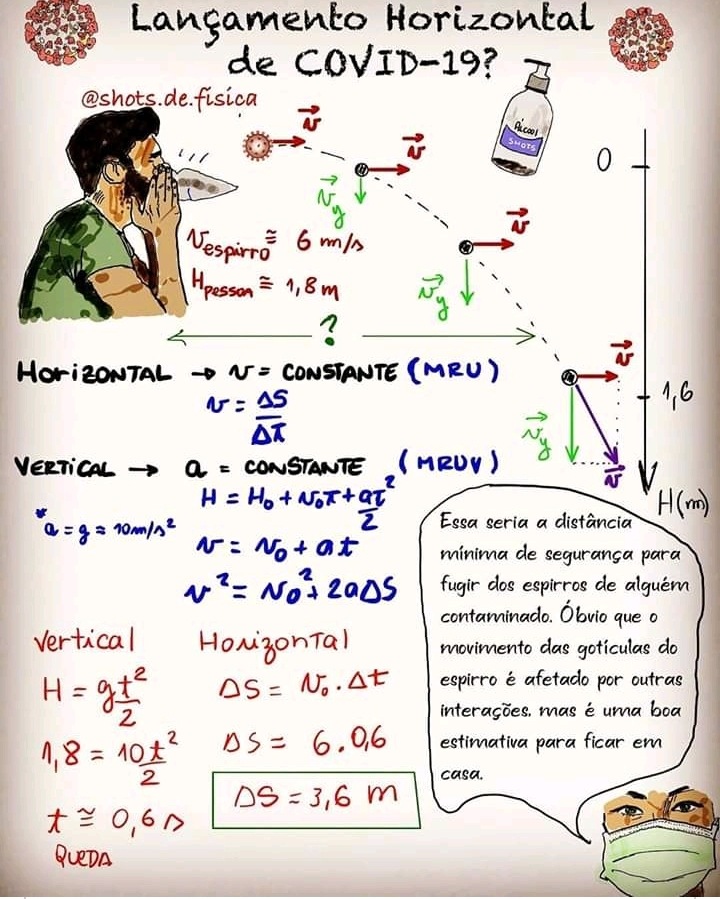 Lançamento Horizontal
de COVID-19?
@shots.de.física
v⃗
v⃗
v⃗y
ÁLCOOL
SHOTS
0
Vespirro ≅ 6 m/s
Hpessoa ≅ 1,8 m
v⃗
v⃗y
?
HORIZONTAL → v = CONSTANTE (MRU)
v = ΔS/Δt
v⃗
1,6
v⃗y
v⃗
H(m)
VERTICAL → a = CONSTANTE (MRUV)
H = H₀ + v₀t + at²/2
*a = g = 10m/s²
v = v₀ + at
v² = v₀² + 2aΔS
Essa seria a distância
mínima de segurança para
fugir dos espirros de alguém
contaminado. Óbvio que o
movimento das gotículas do
espirro é afetado por outras
interações, mas é uma boa
estimativa para ficar em
casa.
Vertical
H = gt²/2
1,8 = 10t²/2
t ≅ 0,6 s
QUEDA
Horizontal
ΔS = v₀ . Δt
ΔS = 6 . 0,6
ΔS = 3,6 m